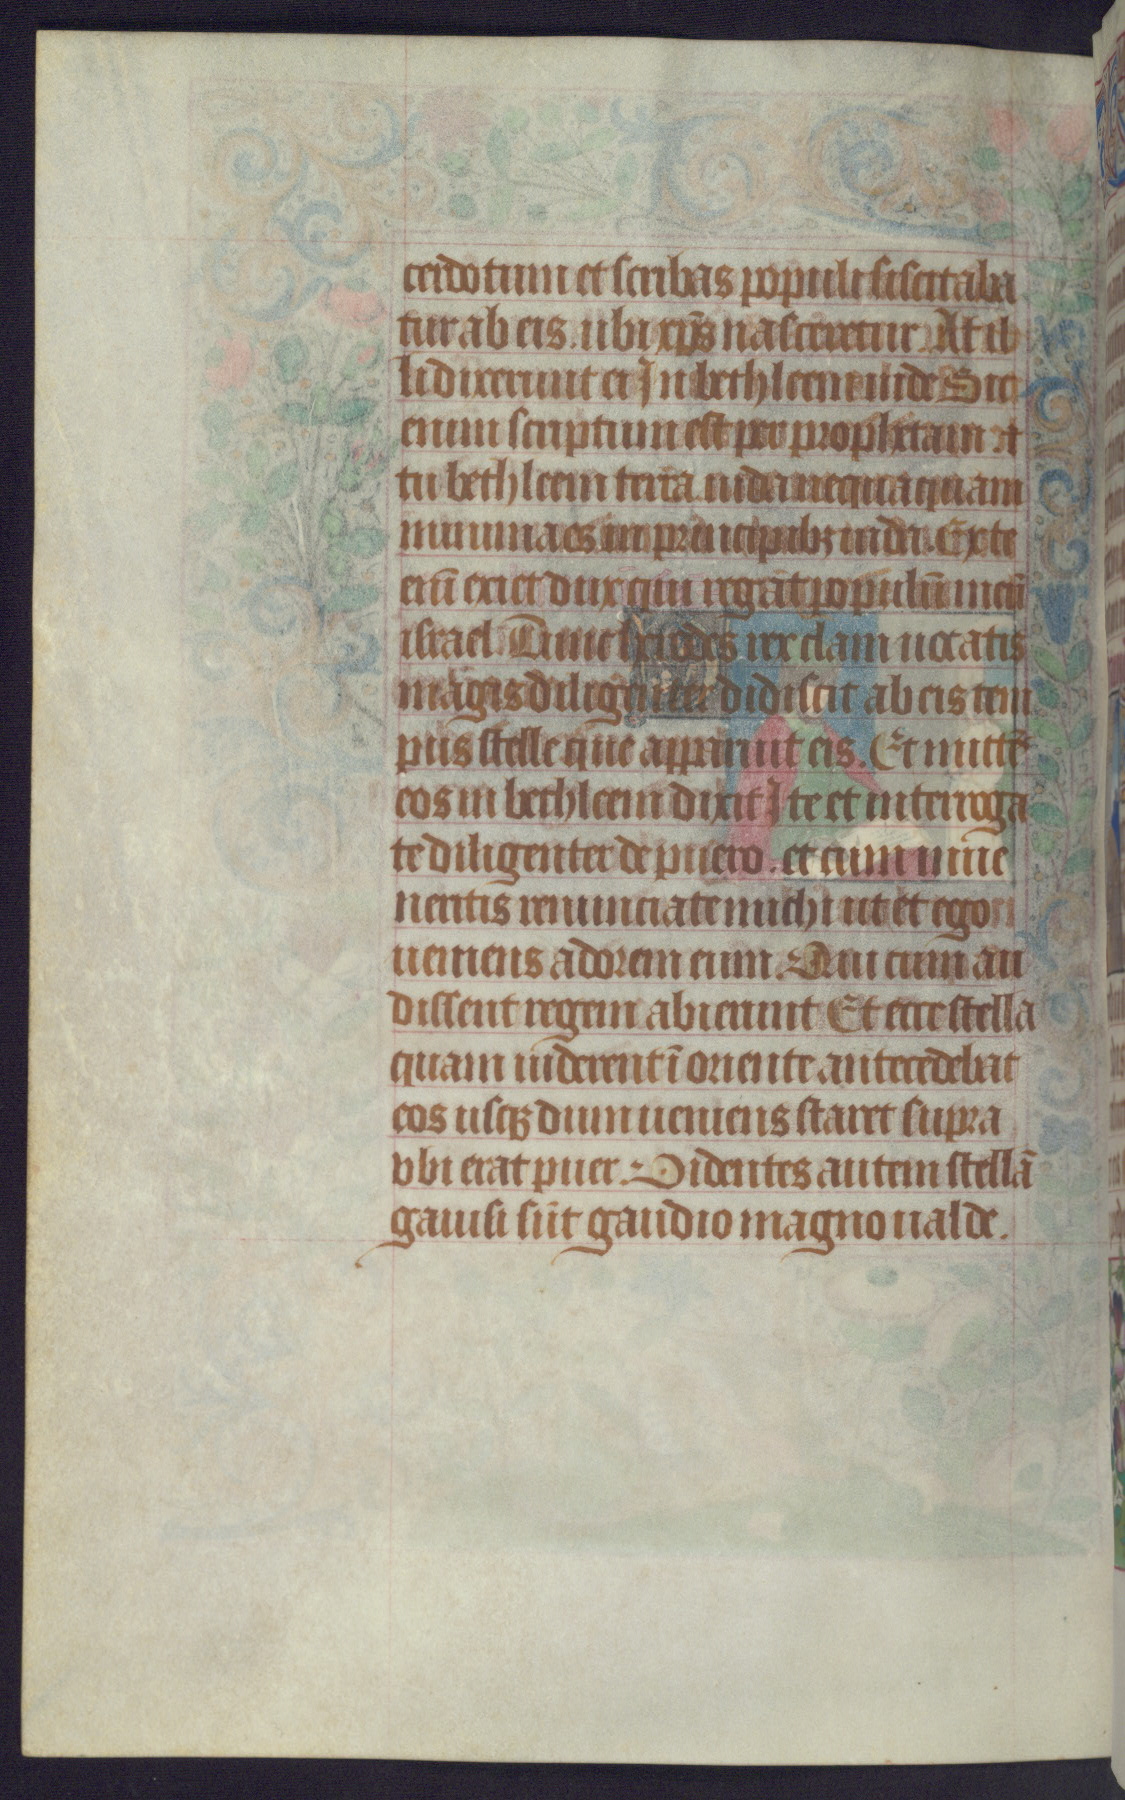 cerdotum et scribas populi sciscitaba
tur ab eis. ubi xp̄s nasceretur. At il
li dixerunt ei In bethleem iude Sic
enim scriptum est per prophetam et
tu bethleem terra iuda nequaquam
minima es in principibꝫ iuda. Ex te
eni exiet dux qui regat populū meū
israel. Tunc herodes rex clam uocatis
magis diligenter didiscit ab eis tem
pus stelle que apparuit eis. Et mittēs
eos in bethleem dixit Ite et interroga
te diligenter de puero. et cum inue
neritis renunciate michi ut et ego
ueniens adorem eum. Qui cum au
dissent regem abierunt Et ecce stella
quam uiderent ī oriente antecedebat
eos usqꝫ dum ueniens staret supra
vbi erat puer. Videntes autem stellā
gauisi sūt gaudio magno ualde.